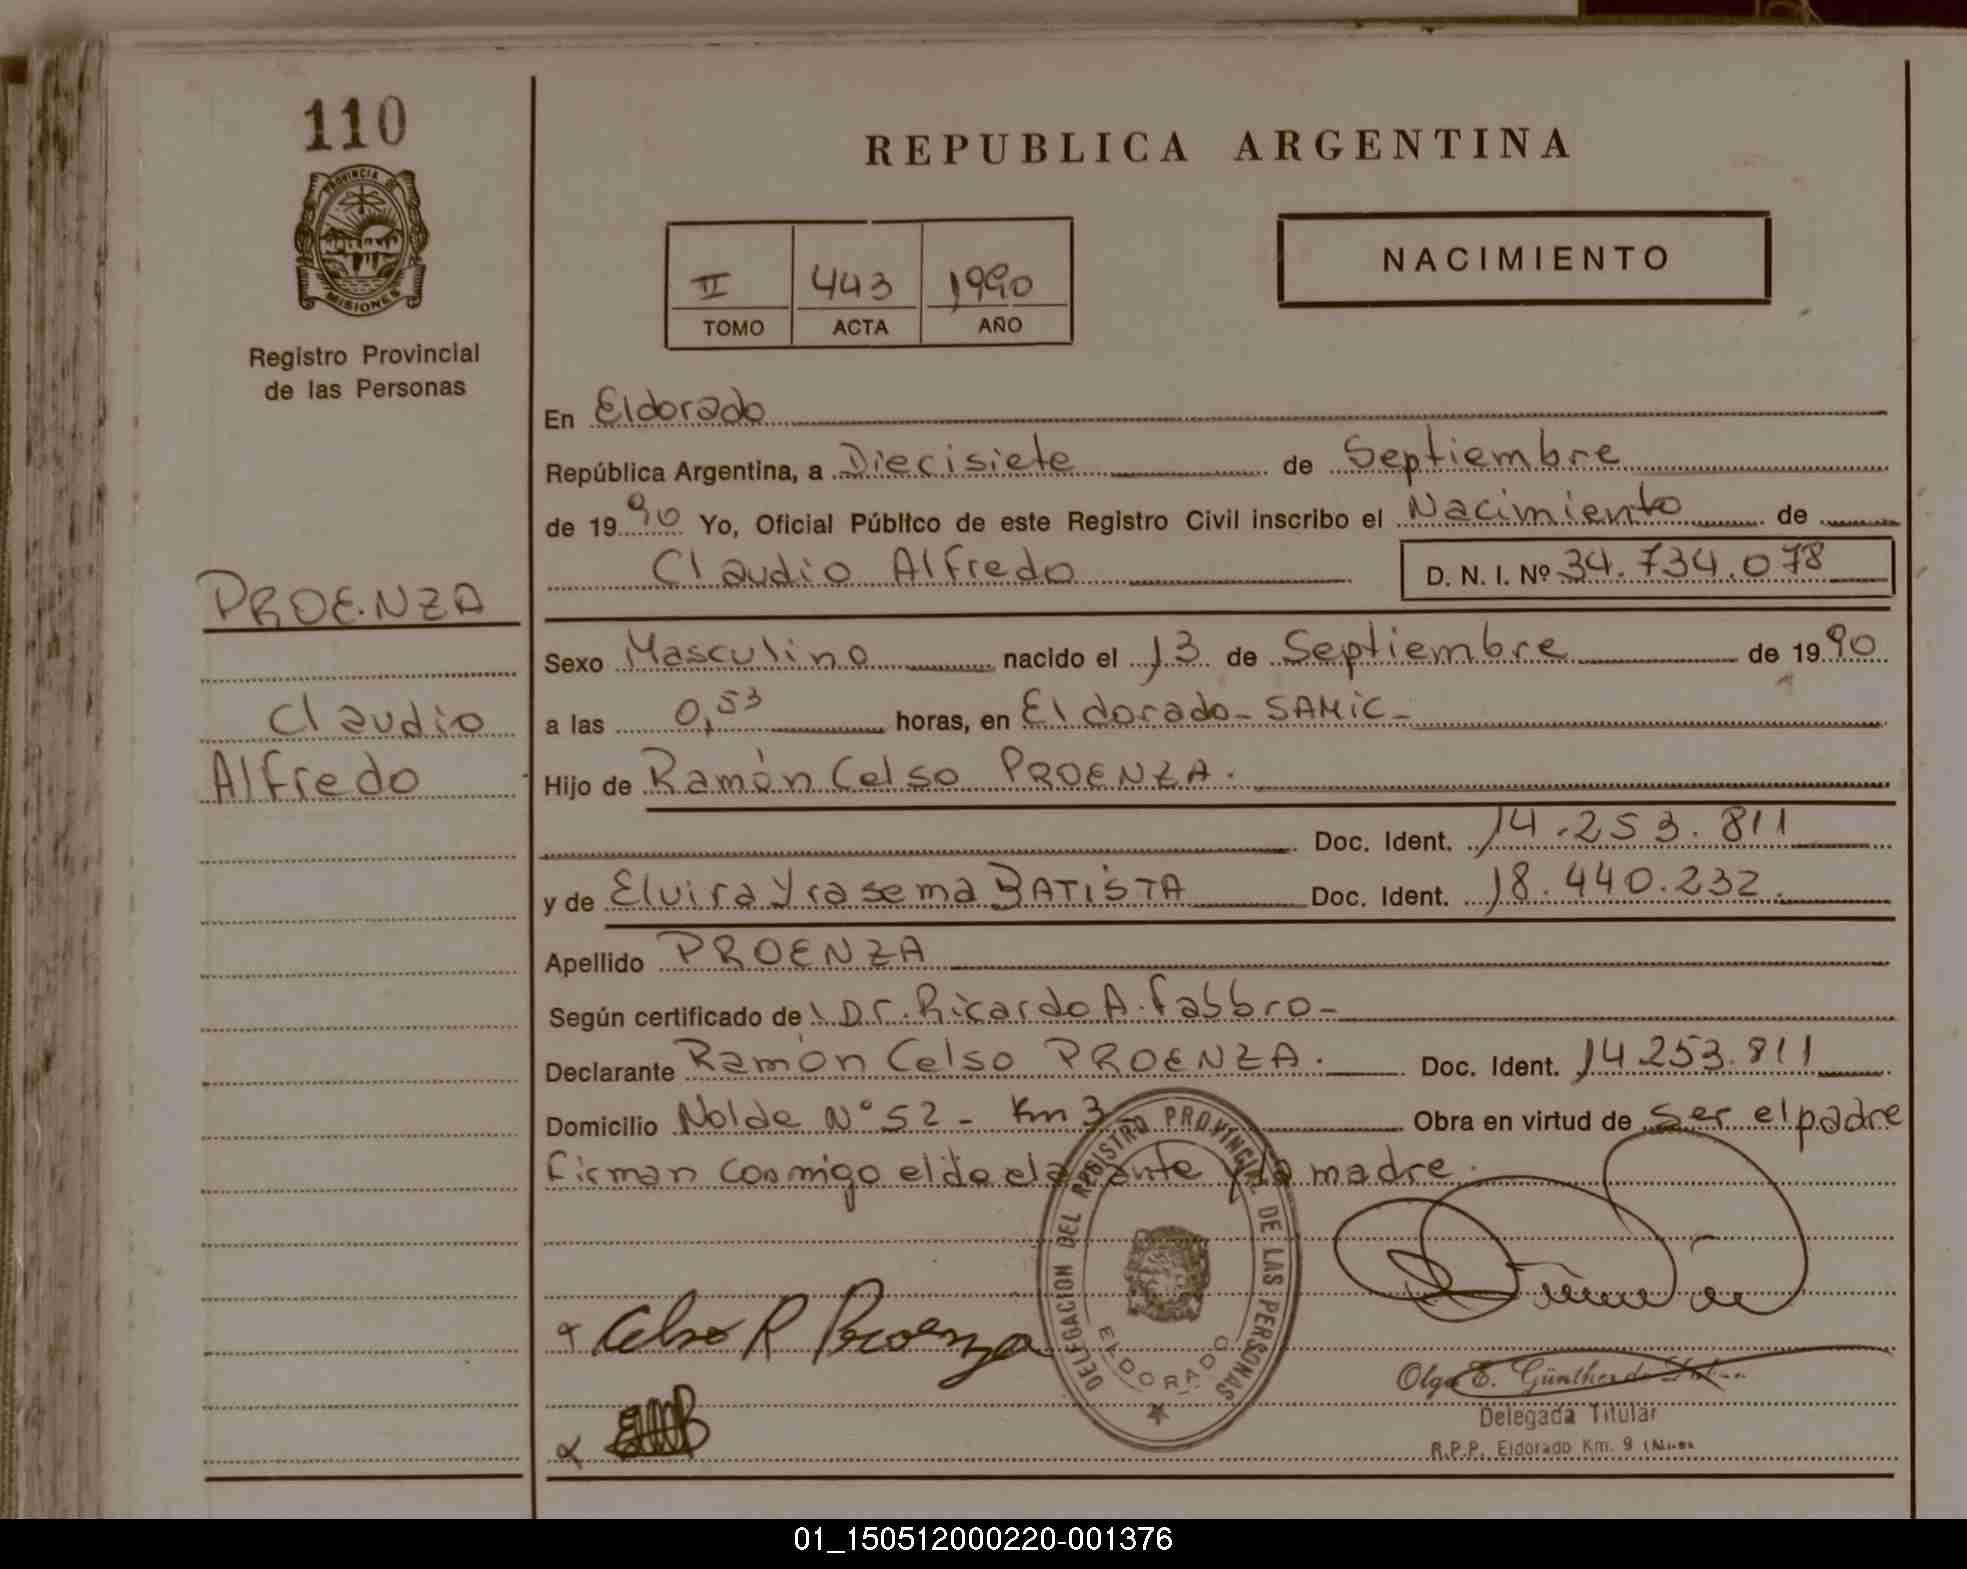 110
PROVINCIA DE
MISIONES
Registro Provincial
de las Personas
REPUBLICA ARGENTINA
II 443 1990
TOMO ACTA AÑO
NACIMIENTO
En Eldorado
República Argentina, a Diecisiete de Septiembre
de 1990 Yo, Oficial Público de este Registro Civil inscribo el Nacimiento de
Claudio Alfredo D. N. I. Nº 34.734.078
PROENZA
Claudio
Alfredo
Sexo Masculino nacido el 13 de Septiembre de 1990
a las 0,53 horas, en Eldorado - SAMIC -
Hijo de Ramón Celso PROENZA.
Doc. Ident. 14.253.811
y de Elvira Yrasema BATISTA Doc. Ident. 18.440.232.
Apellido PROENZA
Según certificado de Dr. Ricardo A. Fabbro -
Declarante Ramón Celso PROENZA. Doc. Ident. 14.253.811
Domicilio Nolde N° 52 - Km 3 Obra en virtud de ser el padre
firman conmigo el declarante y la madre.
DELEGACION DEL REGISTRO PROVINCIAL DE LAS PERSONAS
ELDORADO
Celso R Proenza
Olga E. Günther de
Delegada Titular
R.P.P. Eldorado Km. 9
01_150512000220-001376